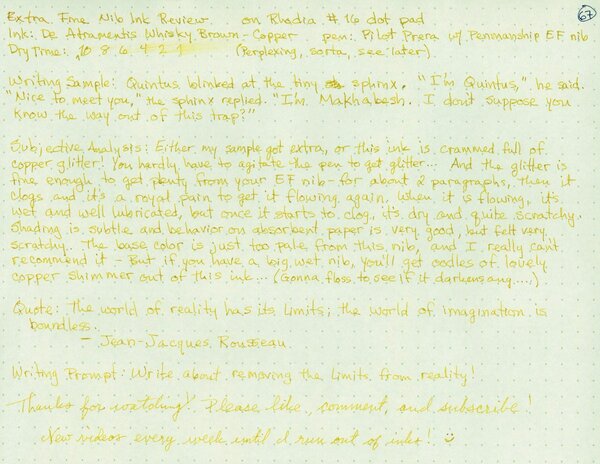 Extra Fine Nib Ink Review on Rhodia #16 dot pad
67
Ink: De Atramentis Whisky Brown - Copper pen: Pilot Prera w/ Penmanship EF nib
Dry Time: 10 8 6 4 2 1 (Perplexing, sorta, see later)
Writing Sample: Quintus blinked at the tiny sphinx. "I'm Quintus," he said.
"Nice to meet you," the sphinx replied. "I'm Makhabesh. I don't suppose you
know the way out of this trap?"
Subjective Analysis: Either my sample got extra, or this ink is crammed full of
copper glitter! You hardly have to agitate the pen to get glitter... And the glitter is
fine enough to get plenty from your EF nib - for about 2 paragraphs, then it
clogs and it's a royal pain to get it flowing again. When it is flowing, it's
wet and well lubricated, but once it starts to clog, it's dry and quite scratchy.
Shading is subtle and behavior on absorbent paper is very good, but felt very
scratchy. The base color is just too pale from this nib, and I really can't
recommend it - But if you have a big wet nib, you'll get oodles of lovely
copper shimmer out of this ink... (Gonna floss to see if it darkens any....)
Quote: The world of reality has its limits; the world of imagination is
boundless.
- Jean-Jacques Rousseau
Writing Prompt: Write about removing the limits from reality!
Thanks for watching! Please like, comment, and subscribe!
New videos every week until I run out of inks!